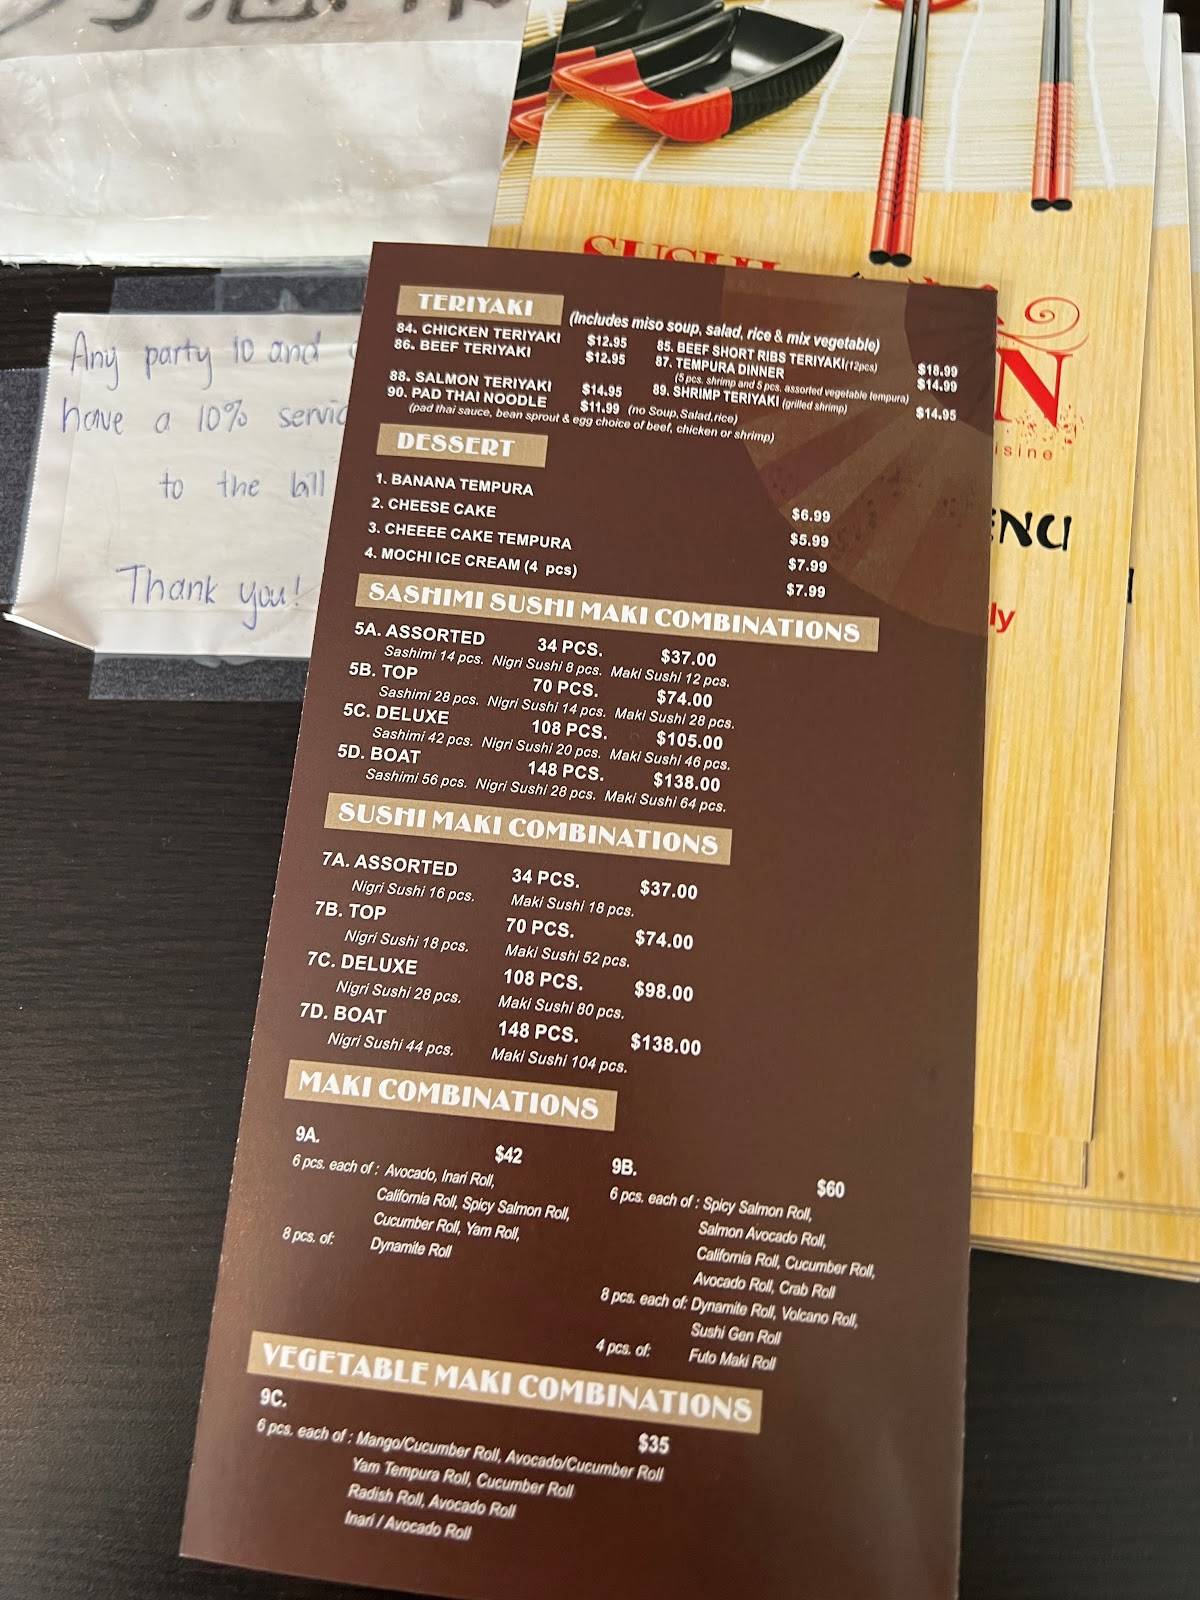 Any party 10 and
have a 10%
to the bill
Thank you!
SUSHI
N
isine
ENU
ly
TERIYAKI (Includes miso soup, salad, rice & mix vegetable)
84. CHICKEN TERIYAKI $12.95 85. BEEF SHORT RIBS TERIYAKI (12pcs) $18.99
86. BEEF TERIYAKI $12.95 87. TEMPURA DINNER $14.99
(5 pcs. shrimp and 5 pcs. assorted vegetable tempura)
88. SALMON TERIYAKI $14.95 89. SHRIMP TERIYAKI (grilled shrimp) $14.95
90. PAD THAI NOODLE $11.99 (no Soup,Salad,rice)
(pad thai sauce, bean sprout & egg choice of beef, chicken or shrimp)
DESSERT
1. BANANA TEMPURA $6.99
2. CHEESE CAKE $5.99
3. CHEEEE CAKE TEMPURA $7.99
4. MOCHI ICE CREAM (4 pcs) $7.99
SASHIMI SUSHI MAKI COMBINATIONS
5A. ASSORTED 34 PCS. $37.00
Sashimi 14 pcs. Nigri Sushi 8 pcs. Maki Sushi 12 pcs.
5B. TOP 70 PCS. $74.00
Sashimi 28 pcs. Nigri Sushi 14 pcs. Maki Sushi 28 pcs.
5C. DELUXE 108 PCS. $105.00
Sashimi 42 pcs. Nigri Sushi 20 pcs. Maki Sushi 46 pcs.
5D. BOAT 148 PCS. $138.00
Sashimi 56 pcs. Nigri Sushi 28 pcs. Maki Sushi 64 pcs.
SUSHI MAKI COMBINATIONS
7A. ASSORTED 34 PCS. $37.00
Nigri Sushi 16 pcs. Maki Sushi 18 pcs.
7B. TOP 70 PCS. $74.00
Nigri Sushi 18 pcs. Maki Sushi 52 pcs.
7C. DELUXE 108 PCS. $98.00
Nigri Sushi 28 pcs. Maki Sushi 80 pcs.
7D. BOAT 148 PCS. $138.00
Nigri Sushi 44 pcs. Maki Sushi 104 pcs.
MAKI COMBINATIONS
9A. $42
6 pcs. each of : Avocado, Inari Roll,
California Roll, Spicy Salmon Roll,
Cucumber Roll, Yam Roll,
8 pcs. of: Dynamite Roll
9B. $60
6 pcs. each of : Spicy Salmon Roll,
Salmon Avocado Roll,
California Roll, Cucumber Roll,
Avocado Roll, Crab Roll
8 pcs. each of: Dynamite Roll, Volcano Roll,
Sushi Gen Roll
4 pcs. of: Futo Maki Roll
VEGETABLE MAKI COMBINATIONS
9C. $35
6 pcs. each of : Mango/Cucumber Roll, Avocado/Cucumber Roll
Yam Tempura Roll, Cucumber Roll
Radish Roll, Avocado Roll
Inari / Avocado Roll